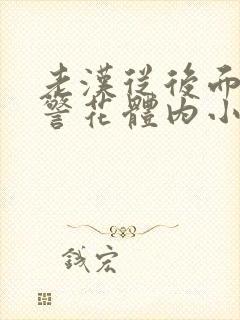 老漢從後而
警花體内小
錢宏